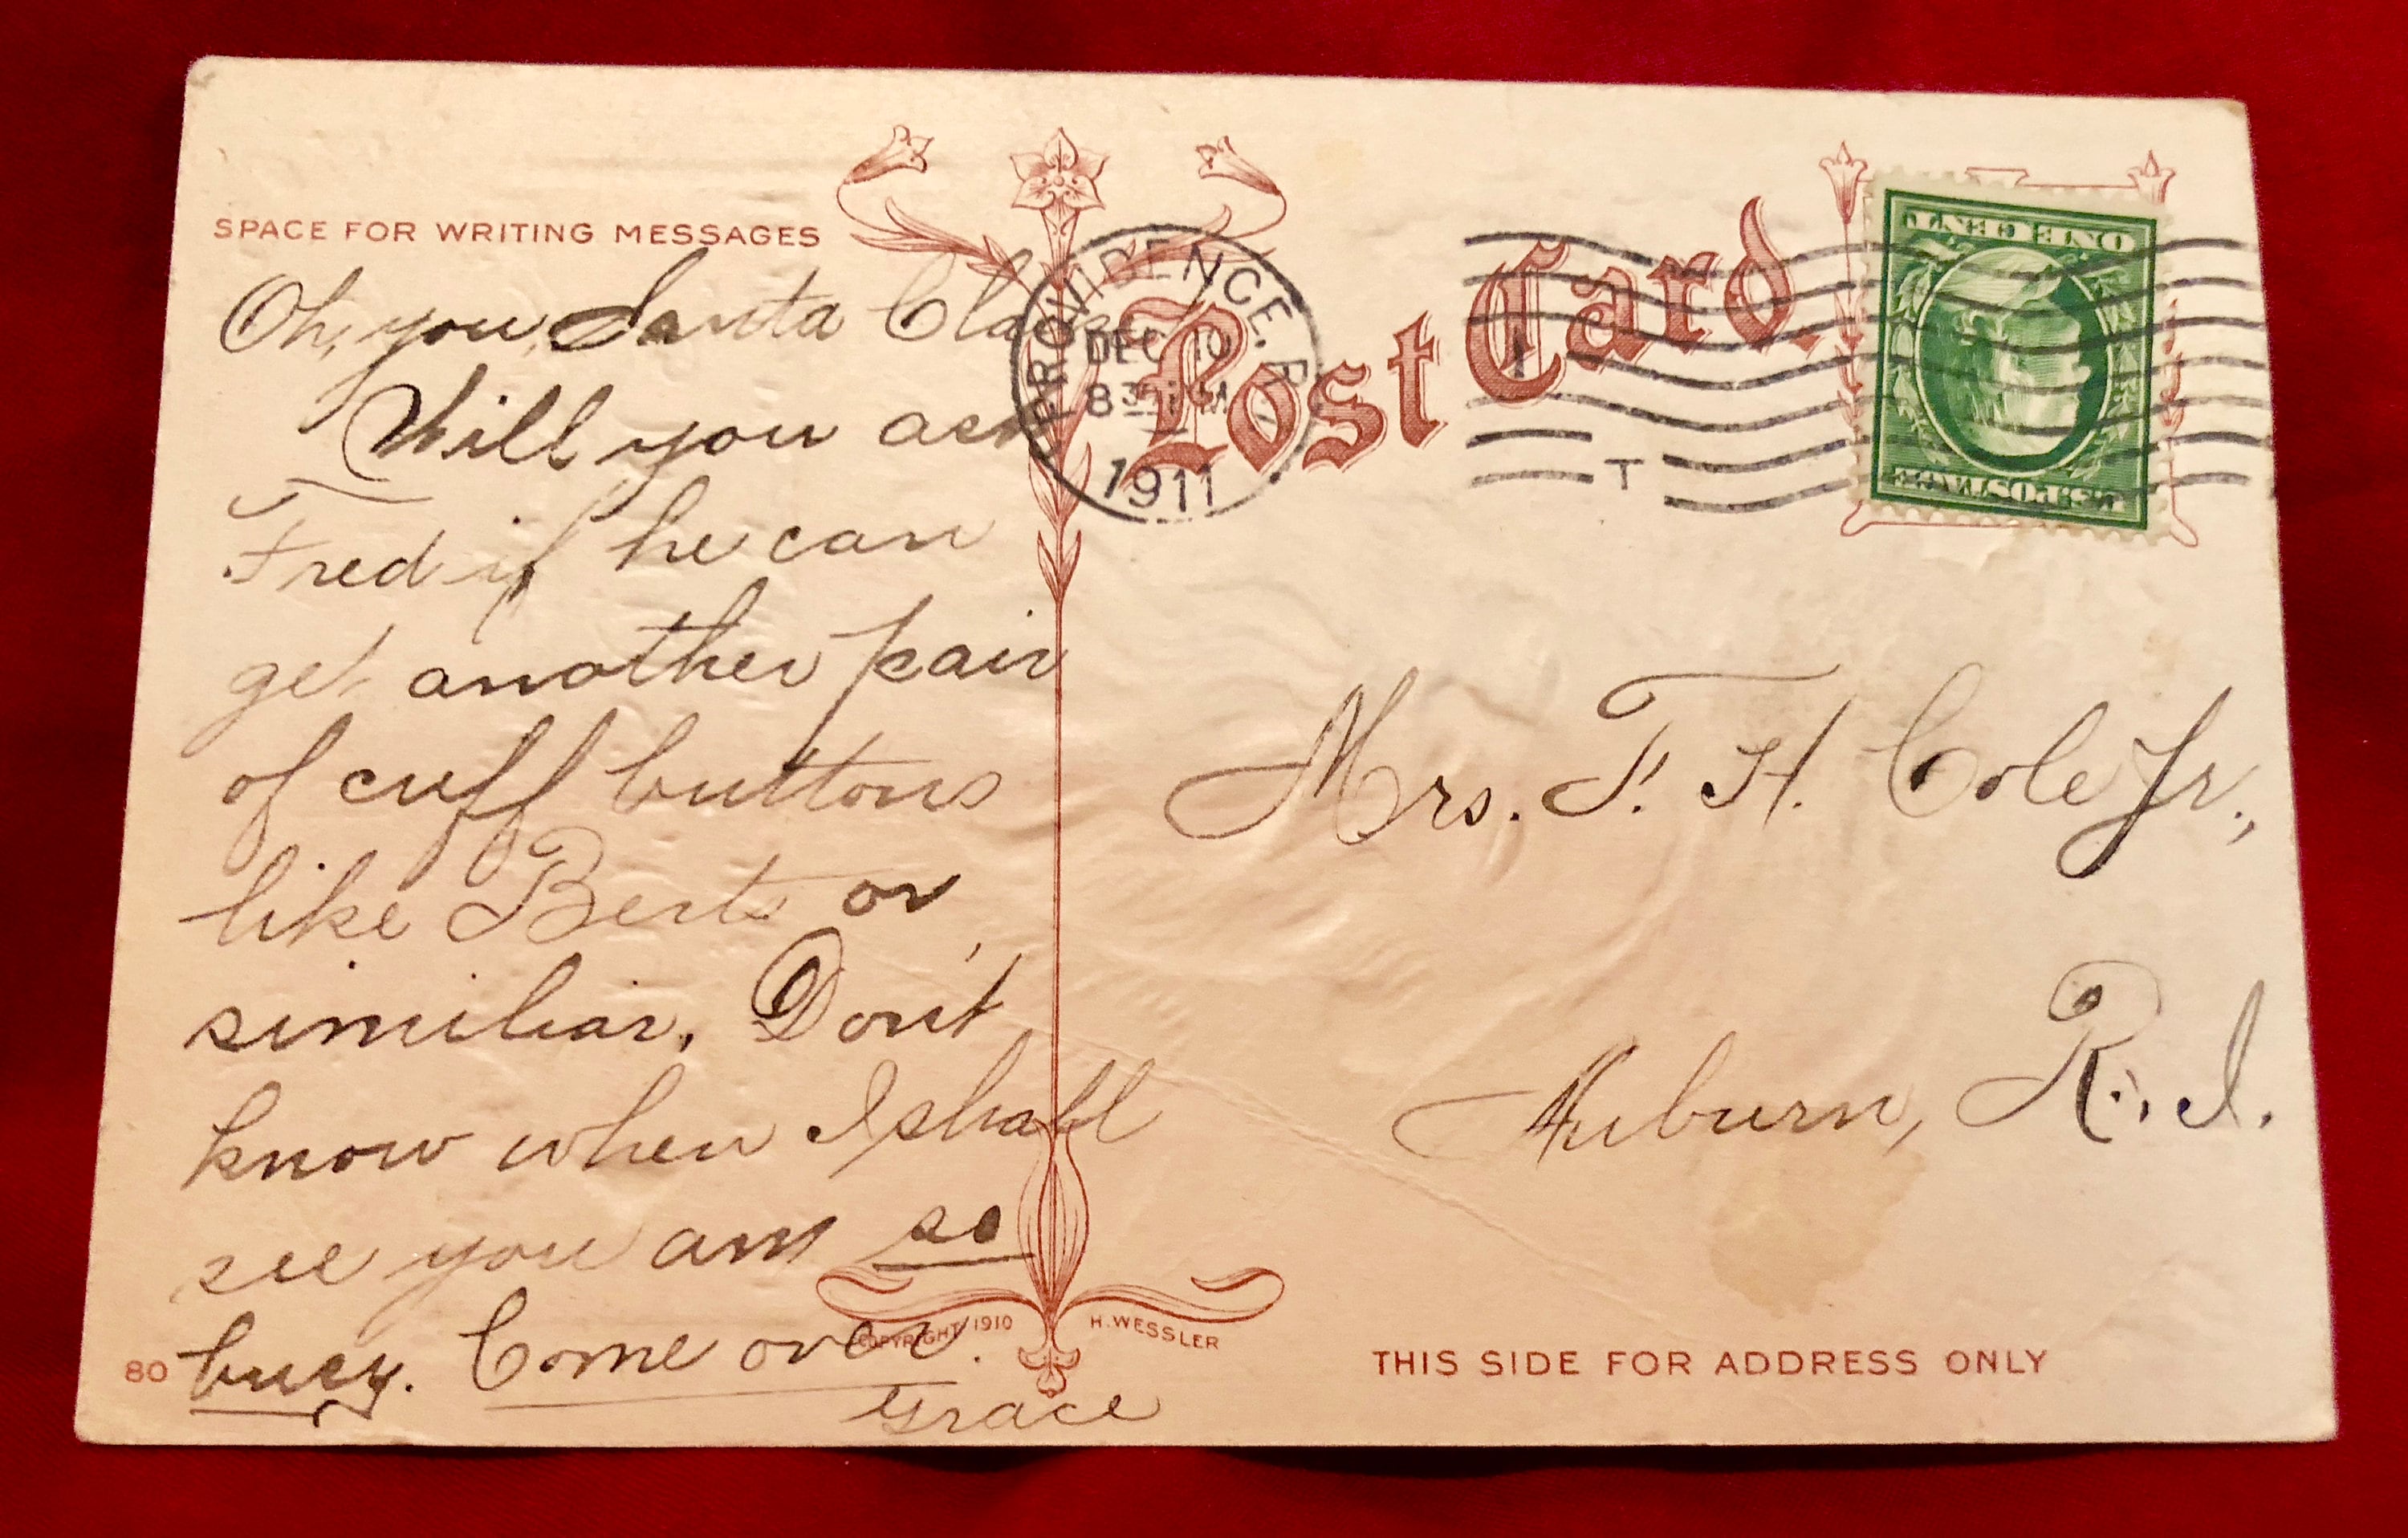 SPACE FOR WRITING MESSAGES
Oh, you Santa Claus
Will you ask
Fred if he can
get another pair
of cuff buttons
like Berts or
similiar. Don't
know when I shall
see you am so
busy. Come over.
Grace
80
COPYRIGHT 1910 H. WESSLER
PROVIDENCE, R.
DEC 10
8 30 M
1911
Post Card
T
ONE CENT
U.S. POSTAGE
Mrs. F. H. Cole Jr.,
Auburn, R. I.
THIS SIDE FOR ADDRESS ONLY